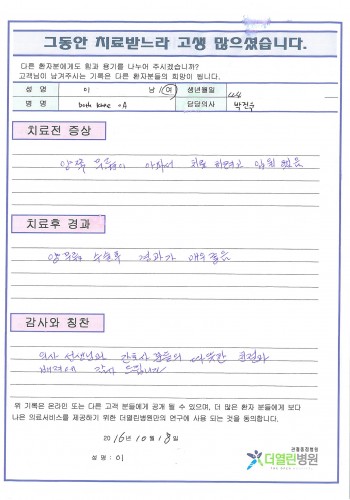 그동안 치료받느라 고생 많으셨습니다.
다른 환자분에게도 힘과 용기를 나누어 주시겠습니까?
고객님이 남겨주시는 기록은 다른 환자분들의 희망이 됩니다.
성 명 이 남 여 생년월일 44
병 명 both knee OA 담당의사 박진수
치료전 증상
양쪽 무릎이 아파서 치료 하려고 입원 했음
치료후 경과
양무릎 수술후 경과가 매우 좋음
감사와 칭찬
의사 선생님과 간호사 분들의 따뜻한 친절과
배려에 감사 드립니다
위 기록은 온라인 또는 다른 고객 분들에게 공개 될 수 있으며, 더 많은 환자 분들에게 보다
나은 의료서비스를 제공하기 위한 더열린병원만의 연구에 사용 되는 것을 동의합니다.
2016년 10월 18일
성 명 : 이
관절중점병원
더열린병원